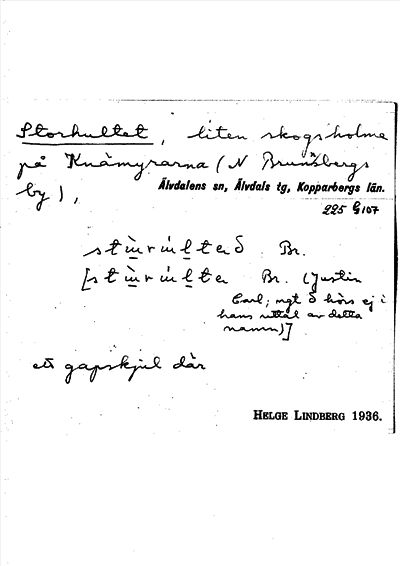 Storhultet, liten skogsholme
på Knåmyrarna (N Brunnsbergs
by),
Älvdalens sn, Älvdals tg, Kopparbergs län.
225 G107
Br.
Br. (Justin
Carl; ngt ð hörs ej i
hans uttal av detta
namn)]
ett gapskjul där
HELGE LINDBERG 1936.